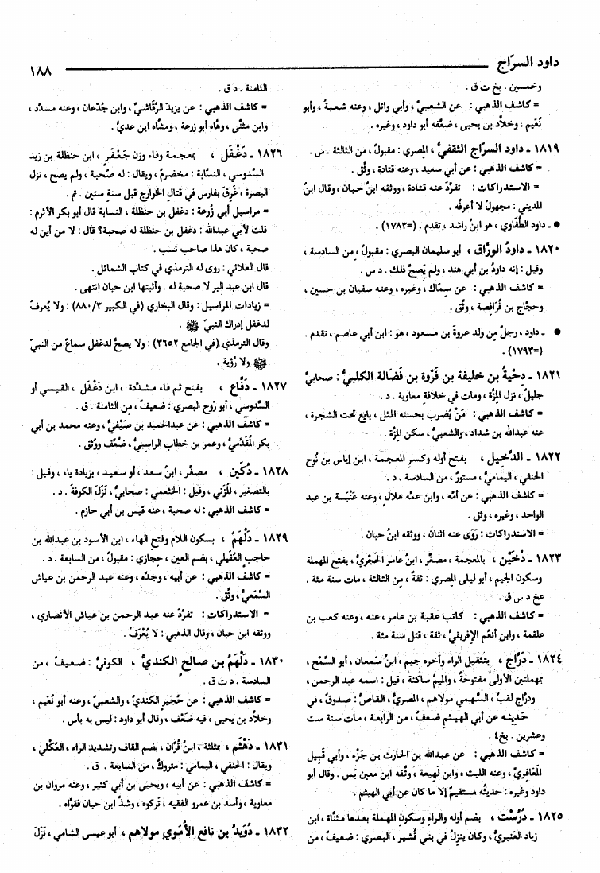 داود السرّاج
١٨٨
وخمسين. بخ ت ق.
= كاشف الذهبي: عن الشعبيِّ، وأبي وائل، وعنه شعبةُ، وأبو
نُعَيم: وخلّاد بن يحيى، ضعَّفه أبو داود، وغيره.
١٨١٩ ـ داود السرّاج الثقفيُّ، المصري: مقبول، من الثالثة. س.
= كاشف الذهبي: عن أبي سعيد، وعنه قتادة، وثّق.
= الاستدراكات: تفرَّد عنه قتادة، ووثقه ابنُ حبان، وقال ابنُ
المديني: مجهولٌ لا أعرفُه.
● ـ داود الطُّفَاوي، هو ابنُ راشد، تقدم. (=١٧٨٣).
١٨٢٠ ـ داودُ الورّاق، أبو سليمان البصري: مقبول، من السادسة،
وقيل: إنه داودُ بن أبي هند، ولم يَصِحَّ ذلك. د س.
= كاشف الذهبي: عن سِمَاك، وغيره، وعنه سفيان بن حسين،
وحجّاج بن فُرَافِصة، وثّق.
● ـ داود، رجلٌ من ولد عروةَ بن مسعود، هو: ابن أبي عاصم، تقدم.
(=١٧٩٣).
١٨٢١ ـ دِحْيةُ بن خليفة بن فَرْوة بن فَضَالة الكلبيُّ: صحابيٌّ
جليلٌ، نزل المِزّة، ومات في خلافة معاوية. د.
= كاشف الذهبي: مَنْ يُضرب بحسنه المثل، بايَع تحت الشجرة،
عنه عبدالله بن شداد، والشعبيُّ، سكن المِزّة.
١٨٢٢ ـ الدَّخِيل، بفتح أوله وكسر المعجمة، ابن إياس بن نُوح
الحنفي، اليمامي: مستورٌ، من السادسة. د.
= كاشف الذهبي: عن أمّه، وابن عمّه هلال، وعنه عَنْبَسة بن عبد
الواحد، وغيره، وثق.
= الاستدراكات: رَوَى عنه اثنان، ووثقه ابن حبان.
١٨٢٣ ـ دُخَيْن، بالمعجمة، مصغَّر، ابنُ عامر الحَجْريُّ، بفتح المهملة
وسكون الجيم، أبو ليلى المصري: ثقةٌ، من الثالثة، مات سنة مئة.
عخ د س ق.
= كاشف الذهبي: كاتب عقبة بن عامر، عنه، وعنه كعب بن
علقمة، وابن أنْعُم الإفريقيُّ، ثقة، قتل سنة مئة.
١٨٢٤ ـ دَرّاج، بتثقيل الراء وآخره جيم، ابنُ سَمْعان، أبو السَّمْح،
بمهملتين الأولى مفتوحةٌ، والميم ساكنة، قيل: اسمه عبد الرحمن،
ودرّاج لقبٌ، السَّهْمي مولاهم، المصريُّ، القاصُّ: صدوقٌ، في
حديثه عن أبي الهيثم ضعفٌ، من الرابعة، مات سنة ست
وعشرين. بخ٤.
= كاشف الذهبي: عن عبدالله بن الحارث بن جَزْء، وأبي قَبيل
المَعَافريِّ، وعنه الليث، وابن لهيعة، وثّقه ابن معين بَس. وقال أبو
داود وغيره: حديثُه مستقيمٌ إلا ما كان عن أبي الهيثم.
١٨٢٥ ـ دُرُسْت، بضم أوله والراء وسكون المهملة بعدها مثناة، ابن
زياد العَنبريُّ، وكان ينزلُ في بني قُشَير، البصري: ضعيفٌ، من
الثامنة. د ق.
= كاشف الذهبي: عن يزيد الرَّقَاشيِّ، وابن جُدْعان، وعنه مسدد،
وابن مثنّى، وهّاه أبو زرعة، ومشّاه ابن عديّ.
١٨٢٦ ـ دَغْفَل، بمعجمة وفاء وزن جَعْفَرٍ، ابن حنظلة بن زيد
السَّدُوسي، النسّابة: مخضرمٌ، ويقال: له صُحْبة، ولم يصح، نزل
البصرة، غَرِق بفارس في قتال الخوارج قبل سنةِ ستين. تم.
= مراسيل أبي زُرعة: دغفل بن حنظلة، النسابة قال أبو بكر الأثرم:
قلت لأبي عبدالله: دغفل بن حنظلة له صحبة؟ قال: لا من أين له
صحبة، كان هذا صاحب نسب.
قال العلائي: روى له الترمذي في كتاب الشمائل.
قال ابن عبد البر لا صحبة له. وأثبتها ابن حبان انتهى.
= زيادات المراسيل: وقال البخاري (في الكبير ٣/ ٨٨٠): ولا يُعرفُ
لدغفل إدراك النبيِّ ﷺ.
وقال الترمذي (في الجامع ٣٦٥٢): ولا يصحُّ لدغفل سماعٌ من النبيِّ
ﷺ ولا رُؤية.
١٨٢٧ ـ دَفّاع، بفتح ثم فاء مشددة، ابن دَغْفَل، القيسي أو
السَّدُوسي، أبو رَوْح البصري: ضعيفٌ، من الثامنة. ق.
= كاشف الذهبي: عن عبدالحميد بن صَيْفيٍّ، وعنه محمد بن أبي
بكر المقدَّمي، وعمر بن خطاب الراسبيُّ، ضُعِّف ووُثّق.
١٨٢٨ ـ دُكَين، مصغّر، ابنُ سعد، أو سعيد، بزيادة ياء، وقيل:
بالتصغير، المُزَني، وقيل: الخثعمي: صحابيٌّ، نَزَلَ الكوفة. د.
= كاشف الذهبي: له صحبة، عنه قيس بن أبي حازم.
١٨٢٩ ـ دَلْهَم، بسكون اللام وفتح الهاء، ابن الأسود بن عبدالله بن
حاجب العُقَيلي، بضم العين، حِجازي: مقبول، من السابعة. د.
= كاشف الذهبي: عن أبيه، وجدّه، وعنه عبد الرحمن بن عياش
السَّمَعيُّ، وثّق.
= الاستدراكات: تفرَّد عنه عبد الرحمن بن عياش الأنصاري،
ووثقه ابن حبان، وقال الذهبي: لا يُعْرَفُ.
١٨٣٠ ـ دَلْهَمُ بن صالح الكنديُّ، الكوفيُّ: ضعيفٌ، من
السادسة. د ت ق.
= كاشف الذهبي: عن حُجَير الكنديِّ، والشعبي، وعنه أبو نُعَيم،
وخلّاد بن يحيى، فيه ضعف، وقال أبو داود: ليس به بأس.
١٨٣١ ـ دَهْثَم، بمثلثة، ابنُ قُرّان، بضم القاف وتشديد الراء، العُكْلي،
ويقال: الحنفي، اليمامي: متروك، من السابعة. ق.
= كاشف الذهبي: عن أبيه، ويحيى بن أبي كثير، وعنه مروان بن
معاوية، وأسد بن عمرو الفقيه، تركوه، وشذَّ ابن حبان فقوّاه.
١٨٣٢ ـ دُوَيْدُ بن نافع الأُموي مولاهم، أبو عيسى الشامي، نَزَلَ